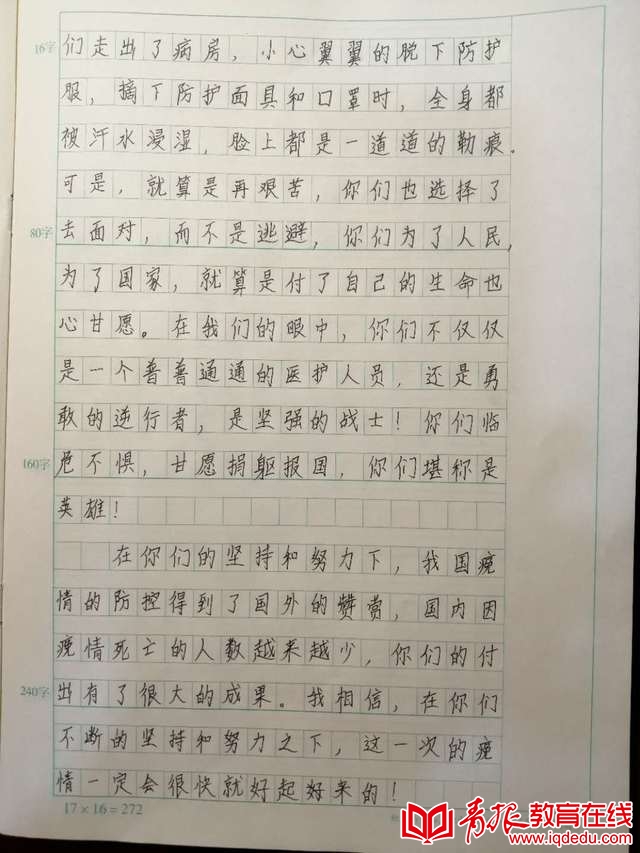 16字
们走出了病房，小心翼翼的脱下防护
服，摘下防护面具和口罩时，全身都
被汗水浸湿，脸上都是一道道的勒痕.
可是，就算是再艰苦，你们也选择了
80字
去面对，而不是逃避，你们为了人民，
为了国家，就算是付了自己的生命也
心甘愿。在我们的眼中，你们不仅仅
是一个普普通通的医护人员，还是勇
敢的逆行者，是坚强的战士！你们临
160字
危不惧，甘愿捐躯报国，你们堪称是
英雄！
在你们的坚持和努力下，我国疫
情的防控得到了国外的赞赏，国内因
疫情死亡的人数越来越少，你们的付
240字
出有了很大的成果。我相信，在你们
不断的坚持和努力之下，这一次的疫
情一定会很快就好起好来的！
17×16=272
青报教育在线
www.iqdedu.com